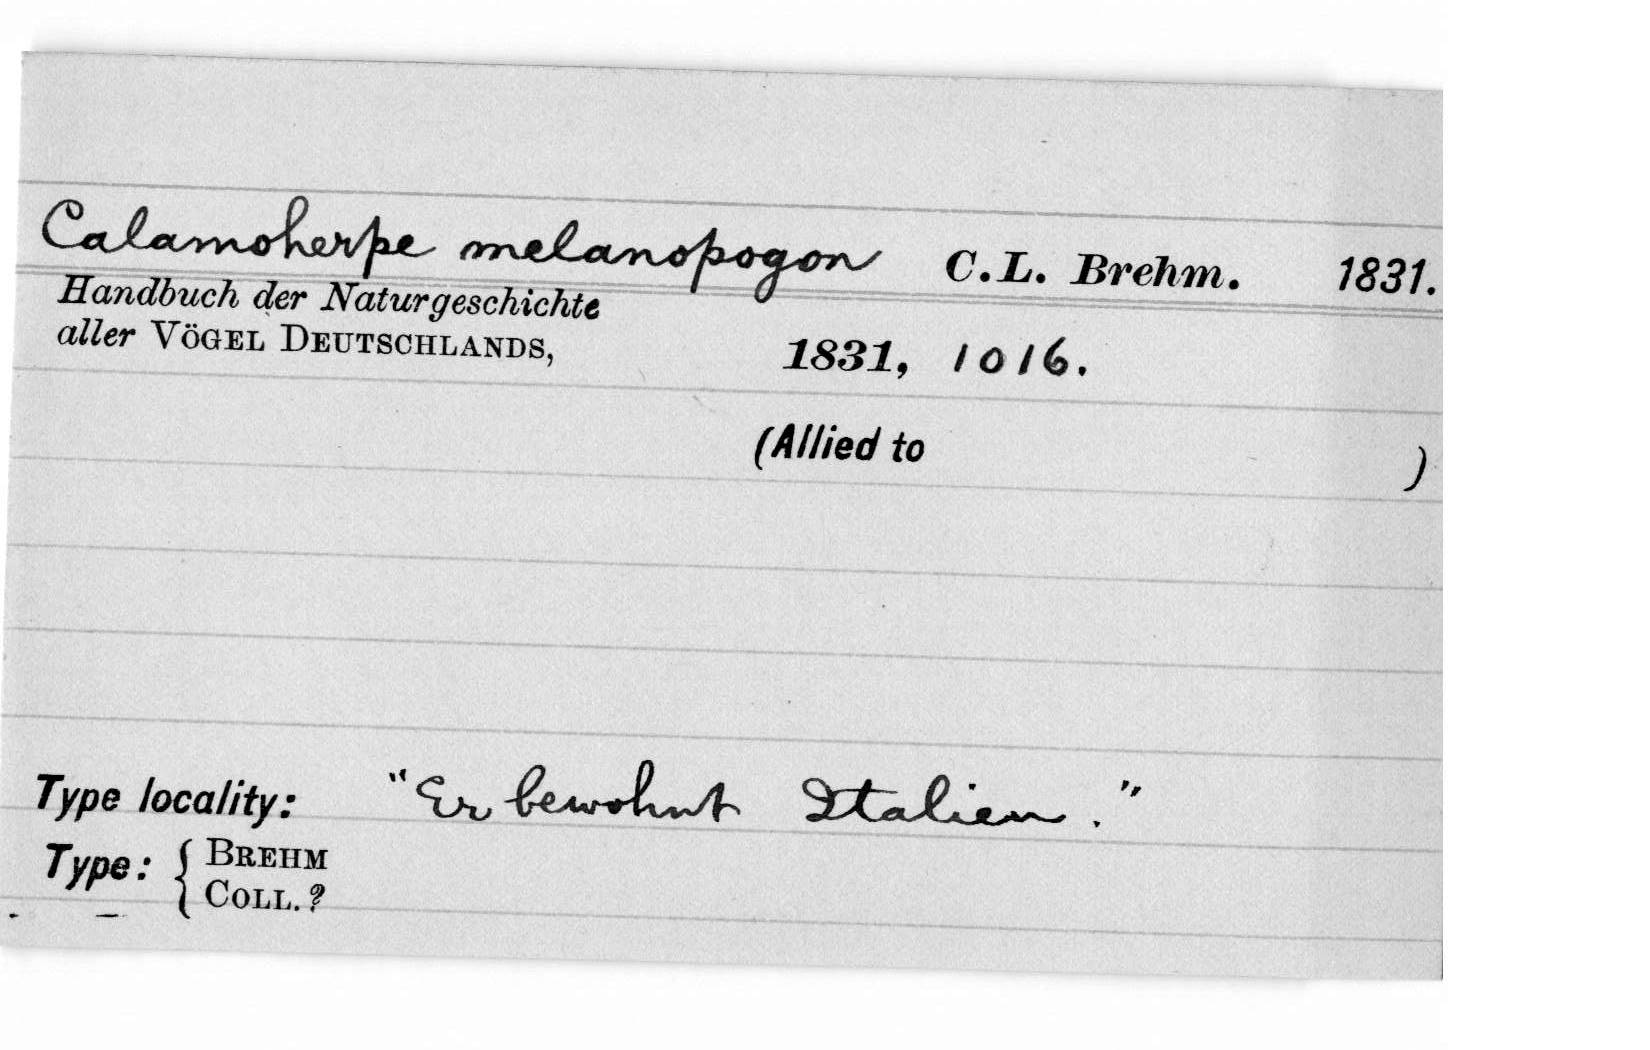 Calamoherpe melanopogon C.L. Brehm. 1831.
Handbuch der Naturgeschichte
aller VÖGEL DEUTSCHLANDS, 1831, 1016.
(Allied to )
Type locality: "Er bewohnt Italien."
Type: { BREHM
COLL. ?